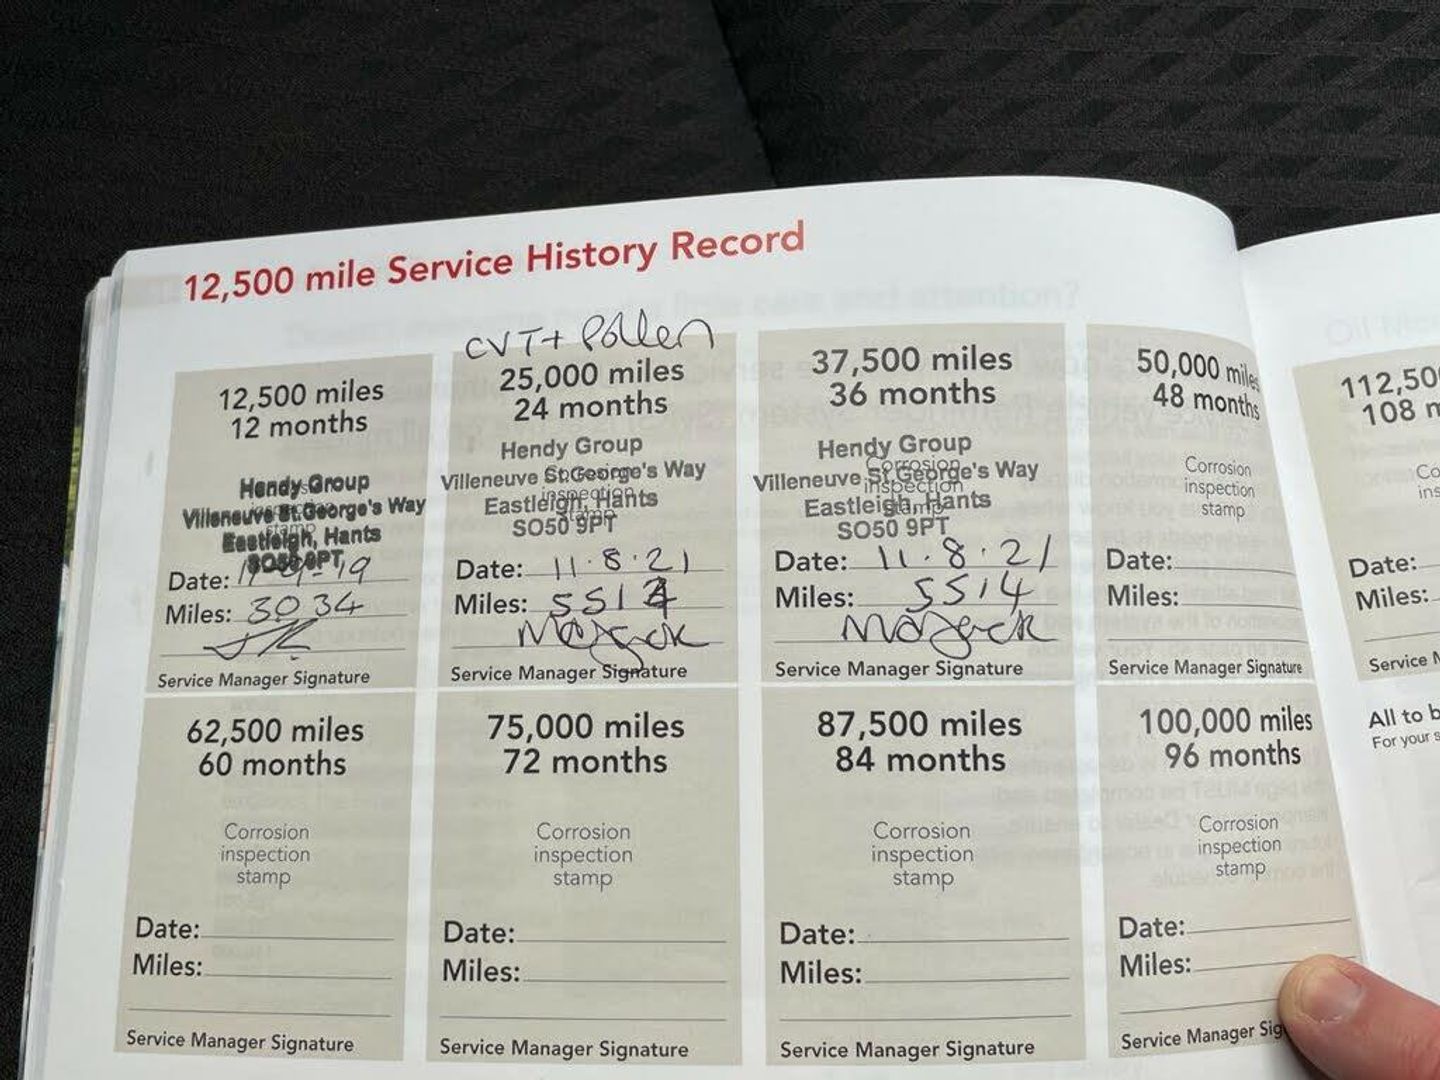 12,500 mile Service History Record
CVT+ Pollen
12,500 miles
12 months
Hendy Group
Villeneuve St.George's Way
Eastleigh, Hants
SO50 9PT
Date:
Miles: 3034
Service Manager Signature
25,000 miles
24 months
Hendy Group
Villeneuve St.George's Way
Corrosion
inspection
stamp
Eastleigh, Hants
SO50 9PT
Date: 11.8.21
Miles: 5514
Service Manager Signature
37,500 miles
36 months
Hendy Group
Corrosion
Villeneuve St.George's Way
inspection
Eastleigh, Hants
stamp
SO50 9PT
Date: 11.8.21
Miles: 5514
Service Manager Signature
50,000 miles
48 months
Corrosion
inspection
stamp
Date:
Miles:
Service Manager Signature
62,500 miles
60 months
Corrosion
inspection
stamp
Date:
Miles:
Service Manager Signature
75,000 miles
72 months
Corrosion
inspection
stamp
Date:
Miles:
Service Manager Signature
87,500 miles
84 months
Corrosion
inspection
stamp
Date:
Miles:
Service Manager Signature
100,000 miles
96 months
Corrosion
inspection
stamp
Date:
Miles:
Service Manager Sig
Oil Me
112,50
108 m
Co
ins
Date:
Miles:
Service M
All to b
For your s